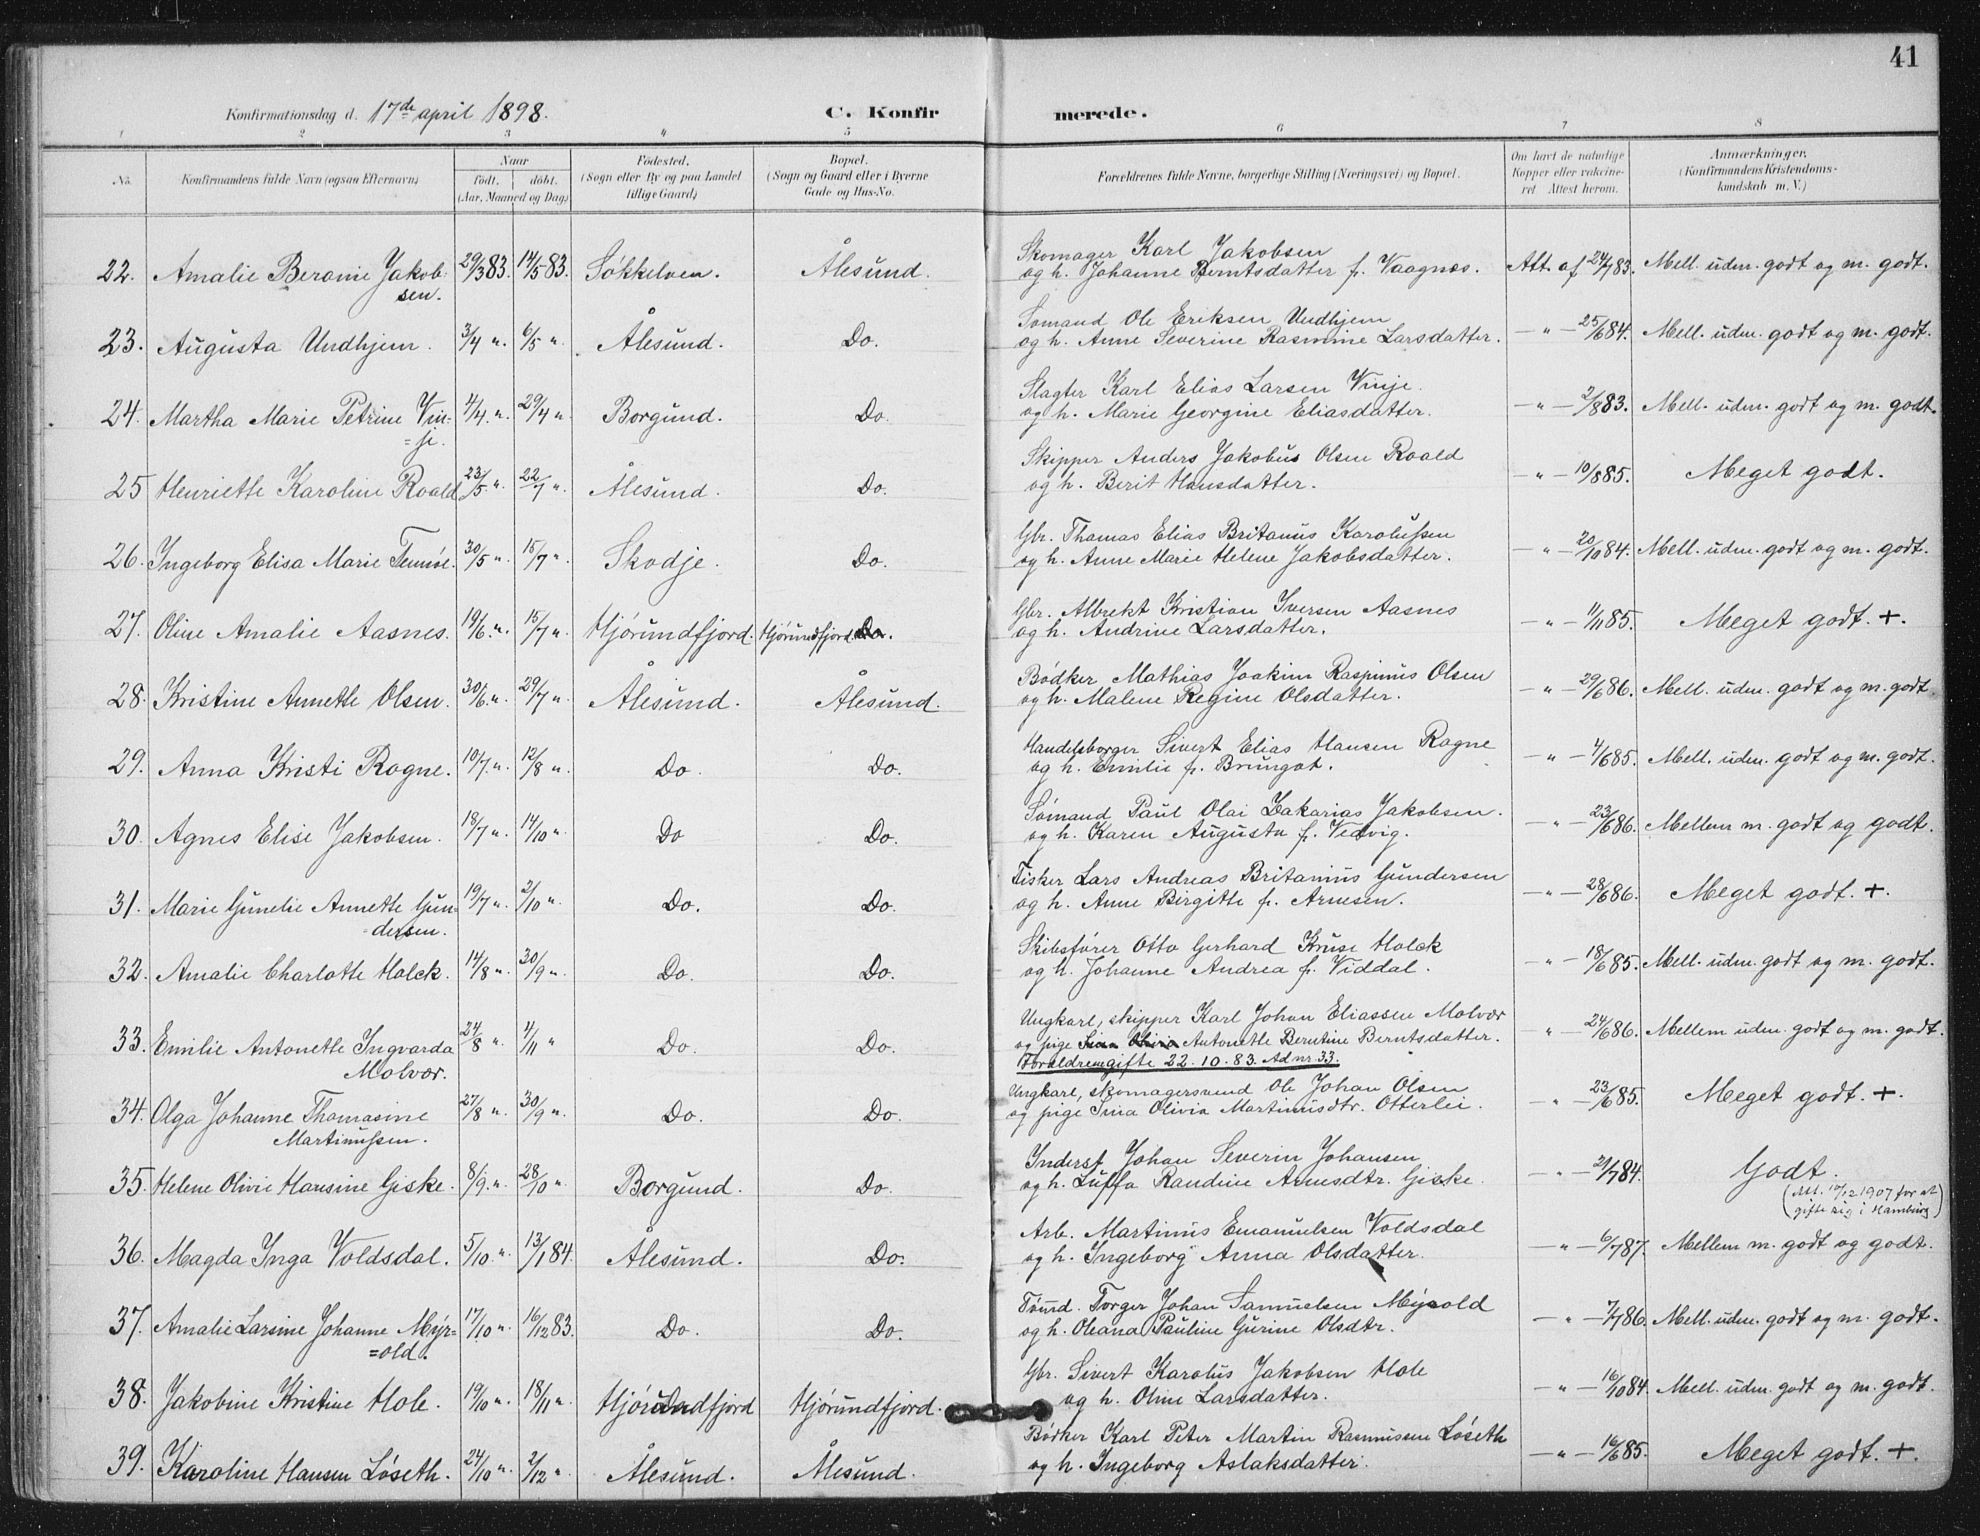 41
Konfirmationsdag d. 17de april 1898. C. Konfirmerede.
1 2 3 4 5 6 7 8
No. Konfirmandens fulde Navn (ogsaa Efternavn) Naar født, døbt. (Aar, Maaned og Dag) Fødested. (Sogn eller By og paa Landet tillige Gaard) Bopæl. (Sogn og Gaard eller i Byerne Gade og Hus-No. Forældrenes fulde Navne, borgerlige Stilling (Næringsvei) og Bopæl. Om havt de naturlige Kopper eller vakcineret Attest herom. Anmærkninger. (Konfirmandens Kristendomskundskab m. V.)
22. Amalie Beranie Jakobsen. 29/3 83. 14/5 83. Søkkelven. Ålesund. Skomager Karl Jakobsen
og h. Johanne Berntsdatter f. Vaagnæs. Att. af 24/7 83. Mell. udm. godt og m. godt.
23. Augusta Undhjem. 3/4 " 6/5 " Ålesund. Do. Sømand Ole Eriksen Undhjem
og h. Anne Severine Rasmine Larsdatter. — " — 25/6 84. Mell. udm. godt og m. godt.
24. Martha Marie Petrine Vin=je. 4/4 " 29/4 " Borgund. Do. Slagter Karl Elias Larsen Vinje.
og h. Marie Georgine Eliasdatter. — " — 2/8 83. Mell. udm. godt og m. godt.
25 Henriette Karoline Roald 23/5 " 22/7 " Ålesund. Do. Skipper Anders Jakobus Olsen Roald
og h. Berit Hansdatter. — " — 10/8 85. Meget godt.
26. Ingeborg Elisa Marie Tennøe. 30/5 " 15/7 " Skodje. Do. Gbr. Thomas Elias Britanus Karolussen
og h. Anne Marie Helene Jakobsdatter. — " — 20/10 84. Mell. udm. godt og m. godt.
27. Oline Amalie Aasnes. 19/6 " 15/7 " Hjørundfjord. Hjørundfjord. Do. Gbr. Albrekt Kristian Iversen Aasnes
og h. Andrine Larsdatter. — " — 11/11 85. Meget godt. +.
28. Kristine Annette Olsen. 30/6 " 29/7 " Ålesund. Ålesund. Bødker Mathias Joakim Rasmus Olsen
og h. Malene Regine Olsdatter. — " — 29/6 86. Mell. udm. godt og m. godt
29. Anna Kristi Rogne. 10/7 " 12/8 " Do. Do. Handelsborger Sivert Elias Hansen Rogne
og h. Emilie f. Brungot. — " — 4/6 85. Mell. udm. godt og m. godt.
30. Agnes Elise Jakobsen. 18/7 " 14/10 " Do Do. Sømand Paul Olai Zakarias Jakobsen.
og h. Karen Augusta f. Vedvig. — " — 23/6 86. Mellem m. godt og godt.
31. Marie Gunelie Annette Gun=dersen. 19/7 " 2/10 " Do. Do. Fisker Lars Andreas Britanius Gundersen
og h. Anne Birgitte f. Arnesen. — " — 28/6 86. Meget godt. +.
32. Amalie Charlotte Holck. 14/8 " 30/9 " Do. Do. Skibsfører Otto Gerhard Kruse Holck
og h. Johanne Andrea f. Viddal. — " — 18/6 85. Mell. udm. godt og m. godt.
33. Emilie Antonette Ingvarda Molvær. 24/8 " 4/11 " Do. Do. Ungkarl, skipper Karl Johan Eliassen Molvær
og pige Antonette Berntine Berntsdatter.
Forældrene gifte 22. 10. 83. Ad nr. 33. " — 24/6 86. Mellem udm. godt og m. godt.
34. Olga Johanne Thomasine Martinussen. 27/8 " 30/9 " Do. Do. Ungkarl, skomagersvend Ole Johan Olsen
og pige Sina Olivia Martinusdtr. Otterlei. " — 23/6 85. Meget godt. +.
35. Helene Olivie Hansine Giske. 8/9 " 28/10 " Borgund. Do. Inderst Johan Severin Johansen
og h. Luffa Randine Arnesdtr. Giske. " — 21/7 84. Godt.
(Att. 10/12 1907 for at
gifte sig i Hamburg)
36. Magda Inga Voldsdal. 5/10 " 13/1 84. Ålesund. Do. Arb. Martinus Emanuelsen Voldsdal
og h. Ingeborg Anna Olsdatter. — " — 6/7 87. Mellem m. godt og godt.
37. Amalie Larsine Johanne Myr=old. 17/10 " 16/12 83. Do. Do. Tømrd. Torger Johan Samuelsen Myrold
og h. Oleana Pauline Gurine Olsdtr. — " — 7/7 86. Mell. udm. godt og m. godt.
38. Jakobine Kristine Hole. 19/10 " 18/11 " Hjørundfjord Hjørundfjord. Gbr. Sivert Karolus Jakobsen Hole
og h. Oline Larsdatter. " — 16/10 84. Mell. udm. godt og m. godt.
39. Karoline Hansen Løseth. 24/10 " 2/12 " Ålesund. Ålesund. Bødker Karl Peter Martin Rasmussen Løseth
og h. Ingeborg Aslaksdatter. — " — 16/6 85. Meget godt. +.